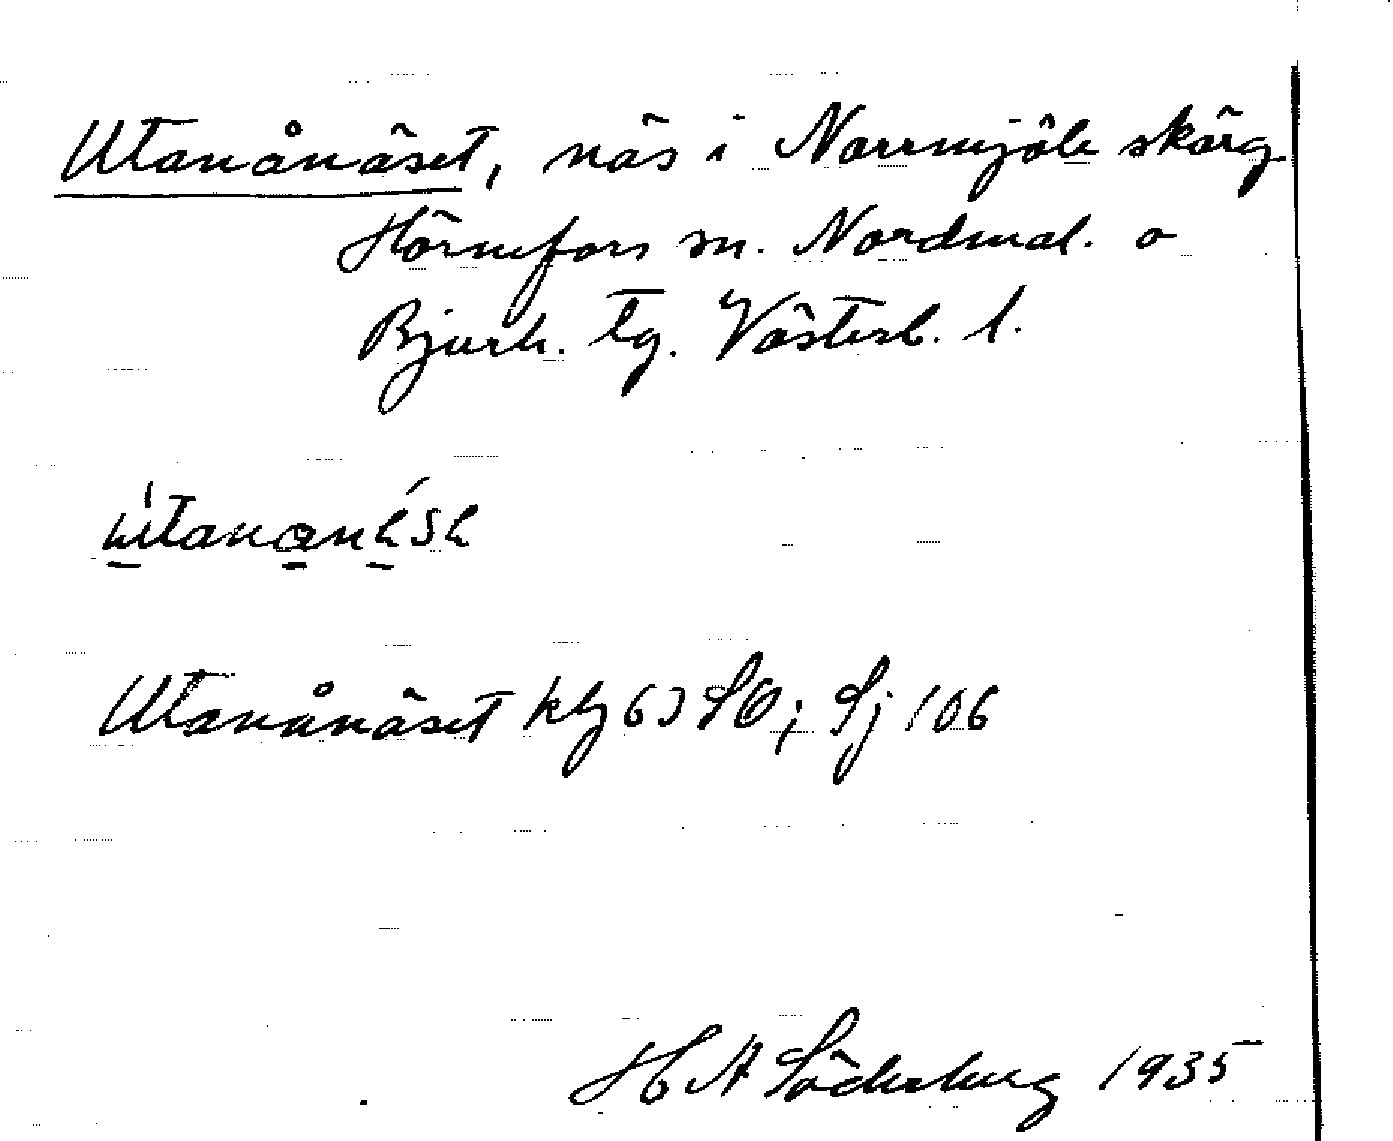 Utanånäset, näs i Norrmjöle skärg.
Hörnefors sn. Nordmal. o
Bjurh. tg. Västerb. l.
Utanånäset kbj 63 SO; Sj 106
H A Söderberg 1935